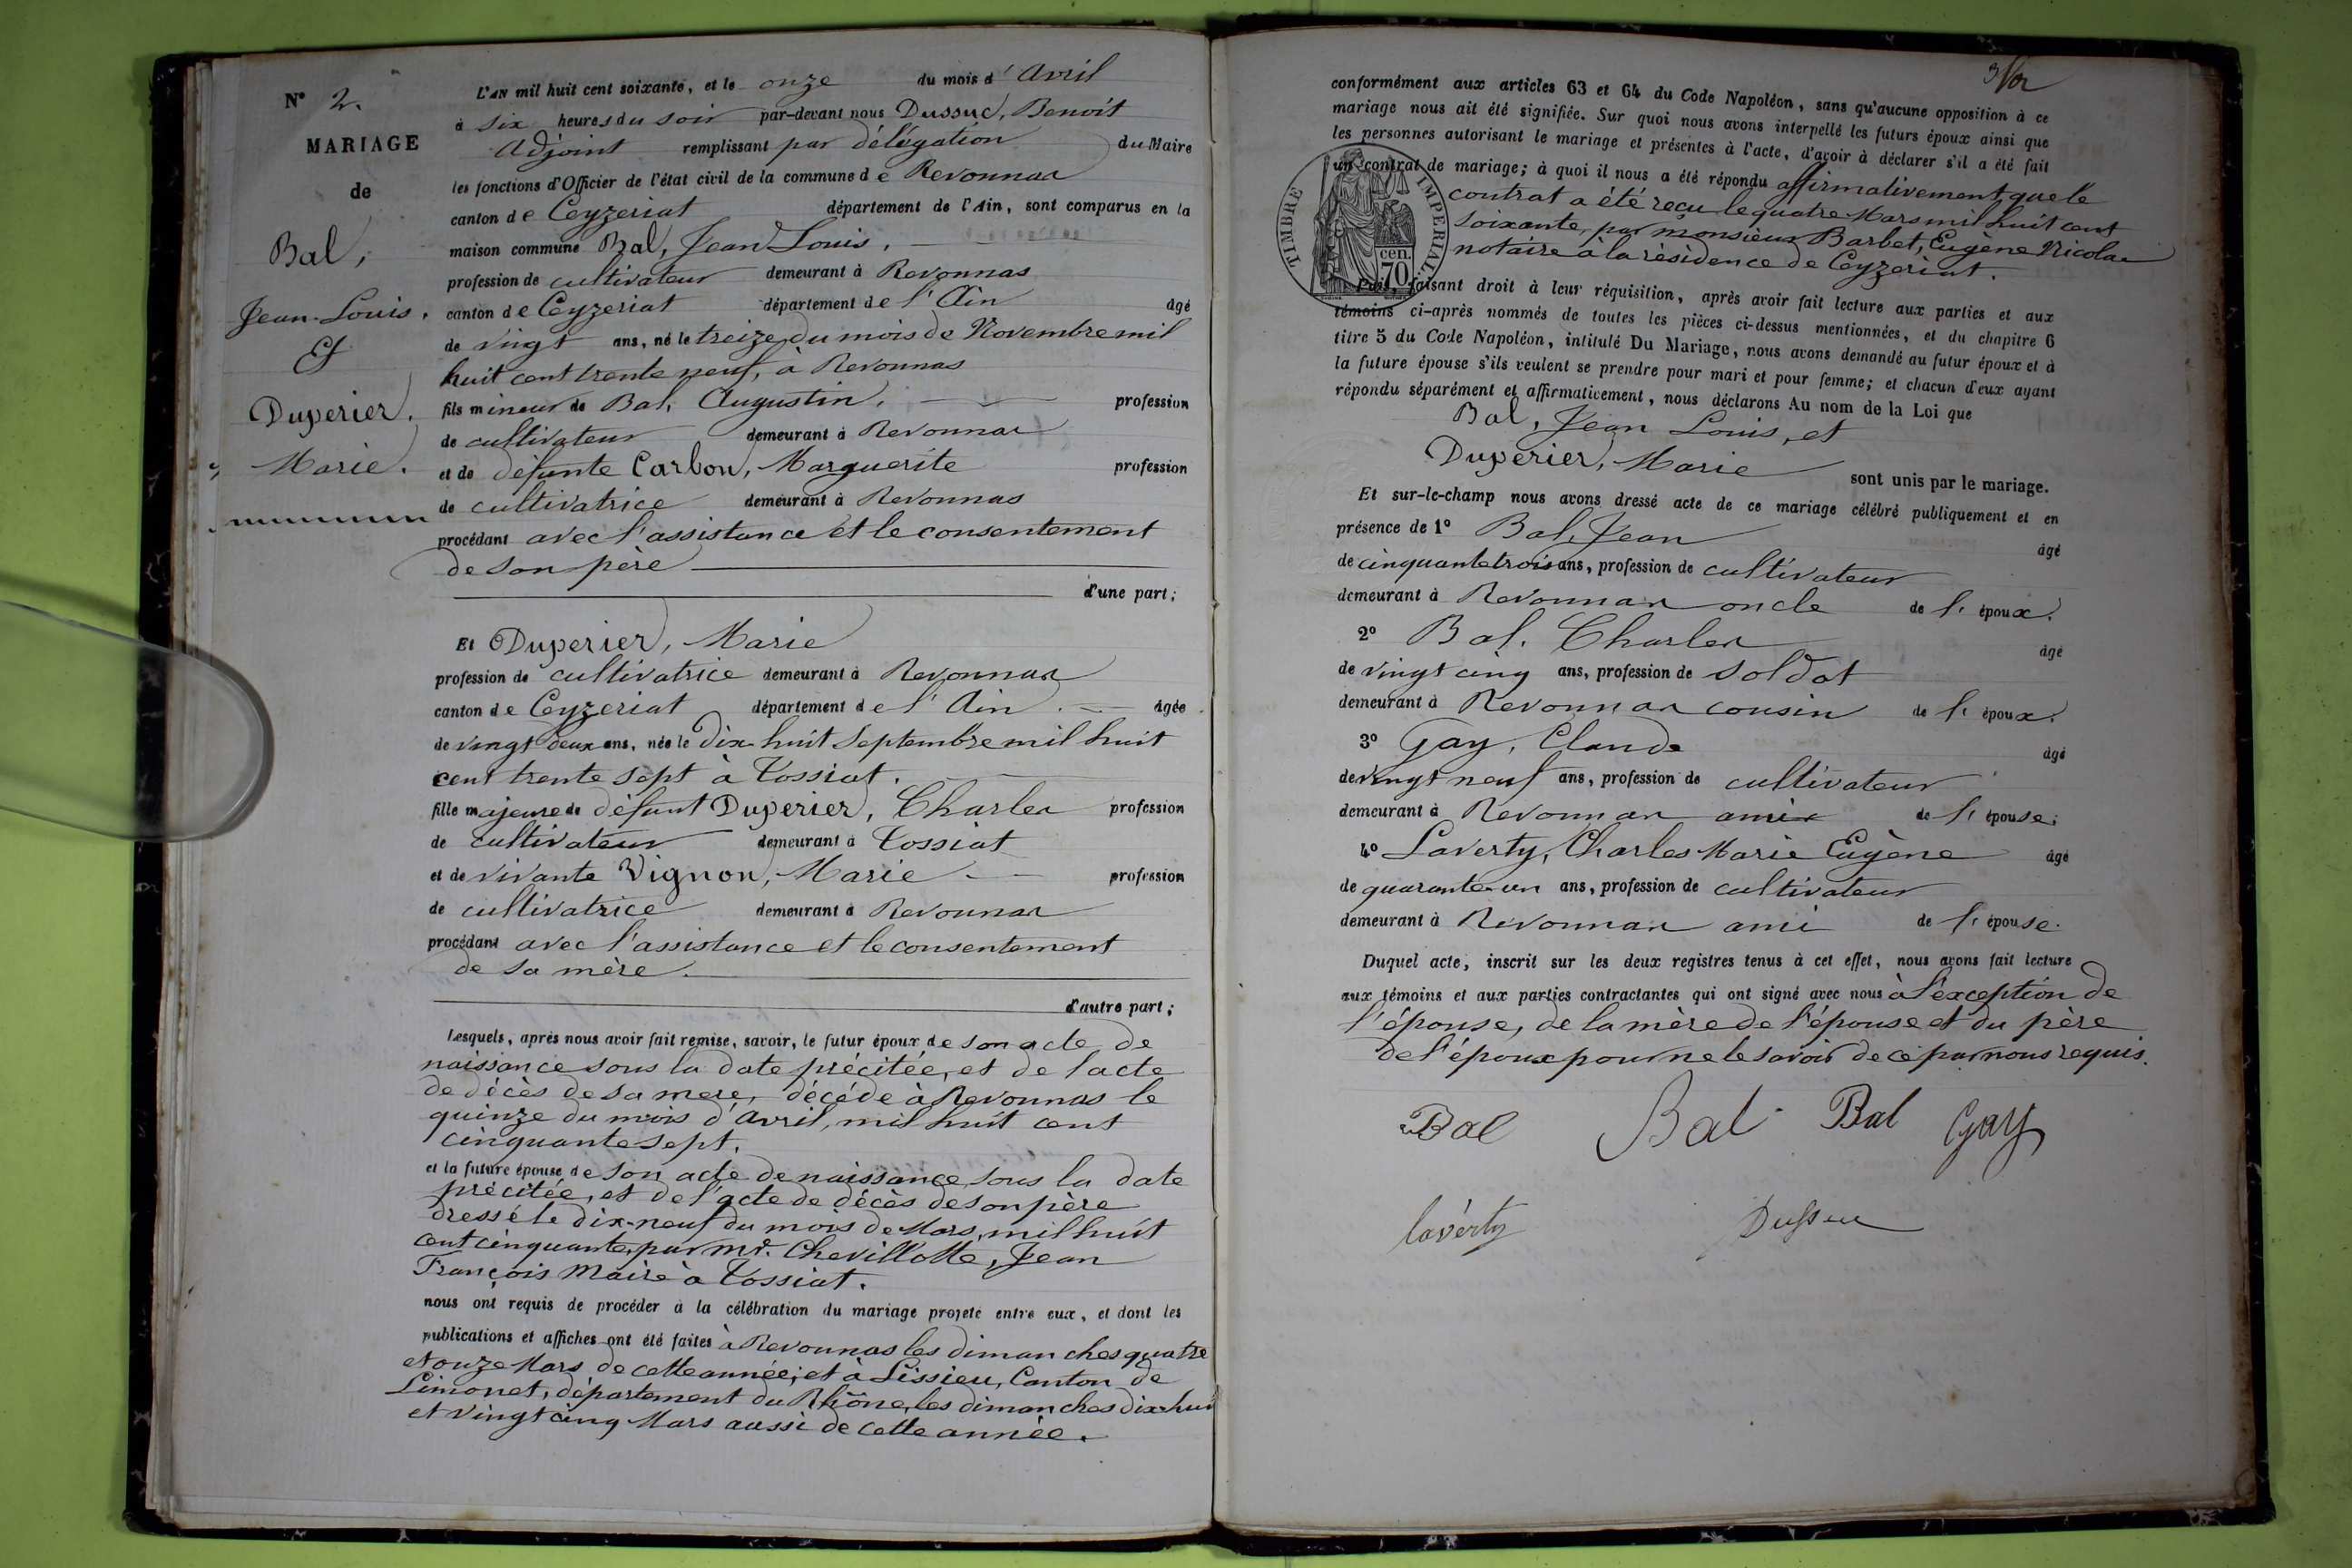 N° 2.
MARIAGE
de
Bal,
Jean-Louis.
Et
Duperier,
Marie.
L'AN mil huit cent soixante, et le onze du mois d'Avril
à six heures du soir par-devant nous Dussuc, Benoit
Adjoint remplissant par délégation du Maire
les fonctions d'Officier de l'état civil de la commune de Revonnas
canton de Ceyzeriat département de l'Ain, sont comparus en la
maison commune Bal, Jean Louis,
profession de cultivateur demeurant à Revonnas
canton de Ceyzeriat département de l'Ain âgé
de vingt ans, né le treize du mois de Novembre mil
huit cent trente neuf, à Revonnas
fils mineur de Bal, Augustin, profession
de cultivateur demeurant à Revonnas
et de défunte Carbon, Marguerite profession
de cultivatrice demeurant à Revonnas
procédant avec l'assistance et le consentement
de son père
d'une part;
Et Duperier, Marie
profession de cultivatrice demeurant à Revonnas
canton de Ceyzeriat département de l'Ain. âgée
de vingt deux ans, née le dix-huit Septembre mil huit
cent trente sept à Tossiat.
fille majeure de défunt Duperier, Charles profession
de cultivateur demeurant à Tossiat
et de vivante Vignon, Marie profession
de cultivatrice demeurant à Revonnas
procédant avec l'assistance et le consentement
de sa mère.
d'autre part;
Lesquels, après nous avoir fait remise, savoir, le futur époux de son acte de
naissance sous la date précitée, et de l'acte
de décès de sa mere, décédé à Revonnas le
quinze du mois d'avril, mil huit cent
cinquante sept.
et la future épouse de son acte de naissance sous la date
précitée, et de l'acte de décès de son père
dressé le dix-neuf du mois de Mars, mil huit
cent cinquante, par mr. Chevillotte, Jean
François Maire à Tossiat.
nous ont requis de procéder à la célébration du mariage projeté entre eux, et dont les
publications et affiches ont été faites à Revonnas les dimanches quatre
et onze Mars de cette année; et à Lissieu, Canton de
Limonet, département du Rhône, les dimanches dix-huit
et vingt cinq Mars aussi de cette année.
conformément aux articles 63 et 64 du Code Napoléon, sans qu'aucune opposition à ce
mariage nous ait été signifiée. Sur quoi nous avons interpellé les futurs époux ainsi que
les personnes autorisant le mariage et présentes à l'acte, d'avoir à déclarer s'il a été fait
un contrat de mariage; à quoi il nous a été répondu affirmativement, que le
contrat a été reçu le quatre Mars mil huit cent
soixante, par monsieur Barbet, Eugène Nicolas
notaire à la résidence de Ceyzeriat.
TIMBRE IMPERIAL
cen.
70
Puis, faisant droit à leur réquisition, après avoir fait lecture aux parties et aux
témoins ci-après nommés de toutes les pièces ci-dessus mentionnées, et du chapitre 6
titre 5 du Code Napoléon, intitulé Du Mariage, nous avons demandé au futur époux et à
la future épouse s'ils veulent se prendre pour mari et pour femme; et chacun d'eux ayant
répondu séparément et affirmativement, nous déclarons Au nom de la Loi que
Bal, Jean Louis, et
Duperier, Marie sont unis par le mariage.
Et sur-le-champ nous avons dressé acte de ce mariage célébré publiquement et en
présence de 1° Bal, Jean âgé
de cinquante trois ans, profession de cultivateur
demeurant à Revonnas oncle de l' époux.
2° Bal, Charles âgé
de vingt cinq ans, profession de soldat
demeurant à Revonnas cousin de l' époux.
3° Gay, Claude âgé
de vingt neuf ans, profession de cultivateur
demeurant à Revonnas ami de l' épouse.
4° Laverty, Charles Marie Eugène âgé
de quarante-un ans, profession de cultivateur
demeurant à Revonnas ami de l' épouse.
Duquel acte, inscrit sur les deux registres tenus à cet effet, nous avons fait lecture
aux témoins et aux parties contractantes qui ont signé avec nous à l'exception de
l'épouse, de la mère de l'épouse et du père
de l'époux pour ne le savoir de ce par nous requis.
Bal Bal Bal Gay
laverty Dussuc